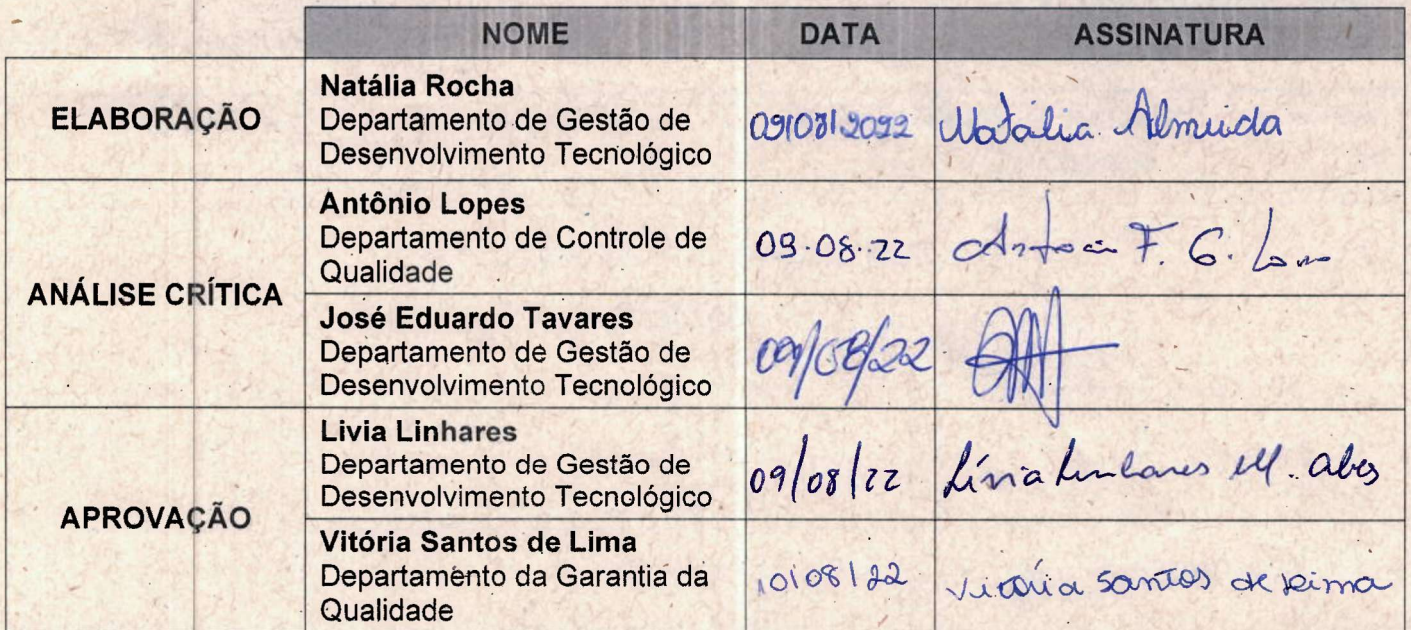 NOME DATA ASSINATURA
ELABORAÇÃO
Natália Rocha
Departamento de Gestão de
Desenvolvimento Tecnológico
09/08/2022 Natália Almeida
ANÁLISE CRÍTICA
Antônio Lopes
Departamento de Controle de
Qualidade
09.08.22 F. G.
José Eduardo Tavares
Departamento de Gestão de
Desenvolvimento Tecnológico
09/08/22
APROVAÇÃO
Livia Linhares
Departamento de Gestão de
Desenvolvimento Tecnológico
09/08/22 Lívia Linhares M. Alves
Vitória Santos de Lima
Departamento da Garantia da
Qualidade
10/08/22 Vitória Santos de Lima